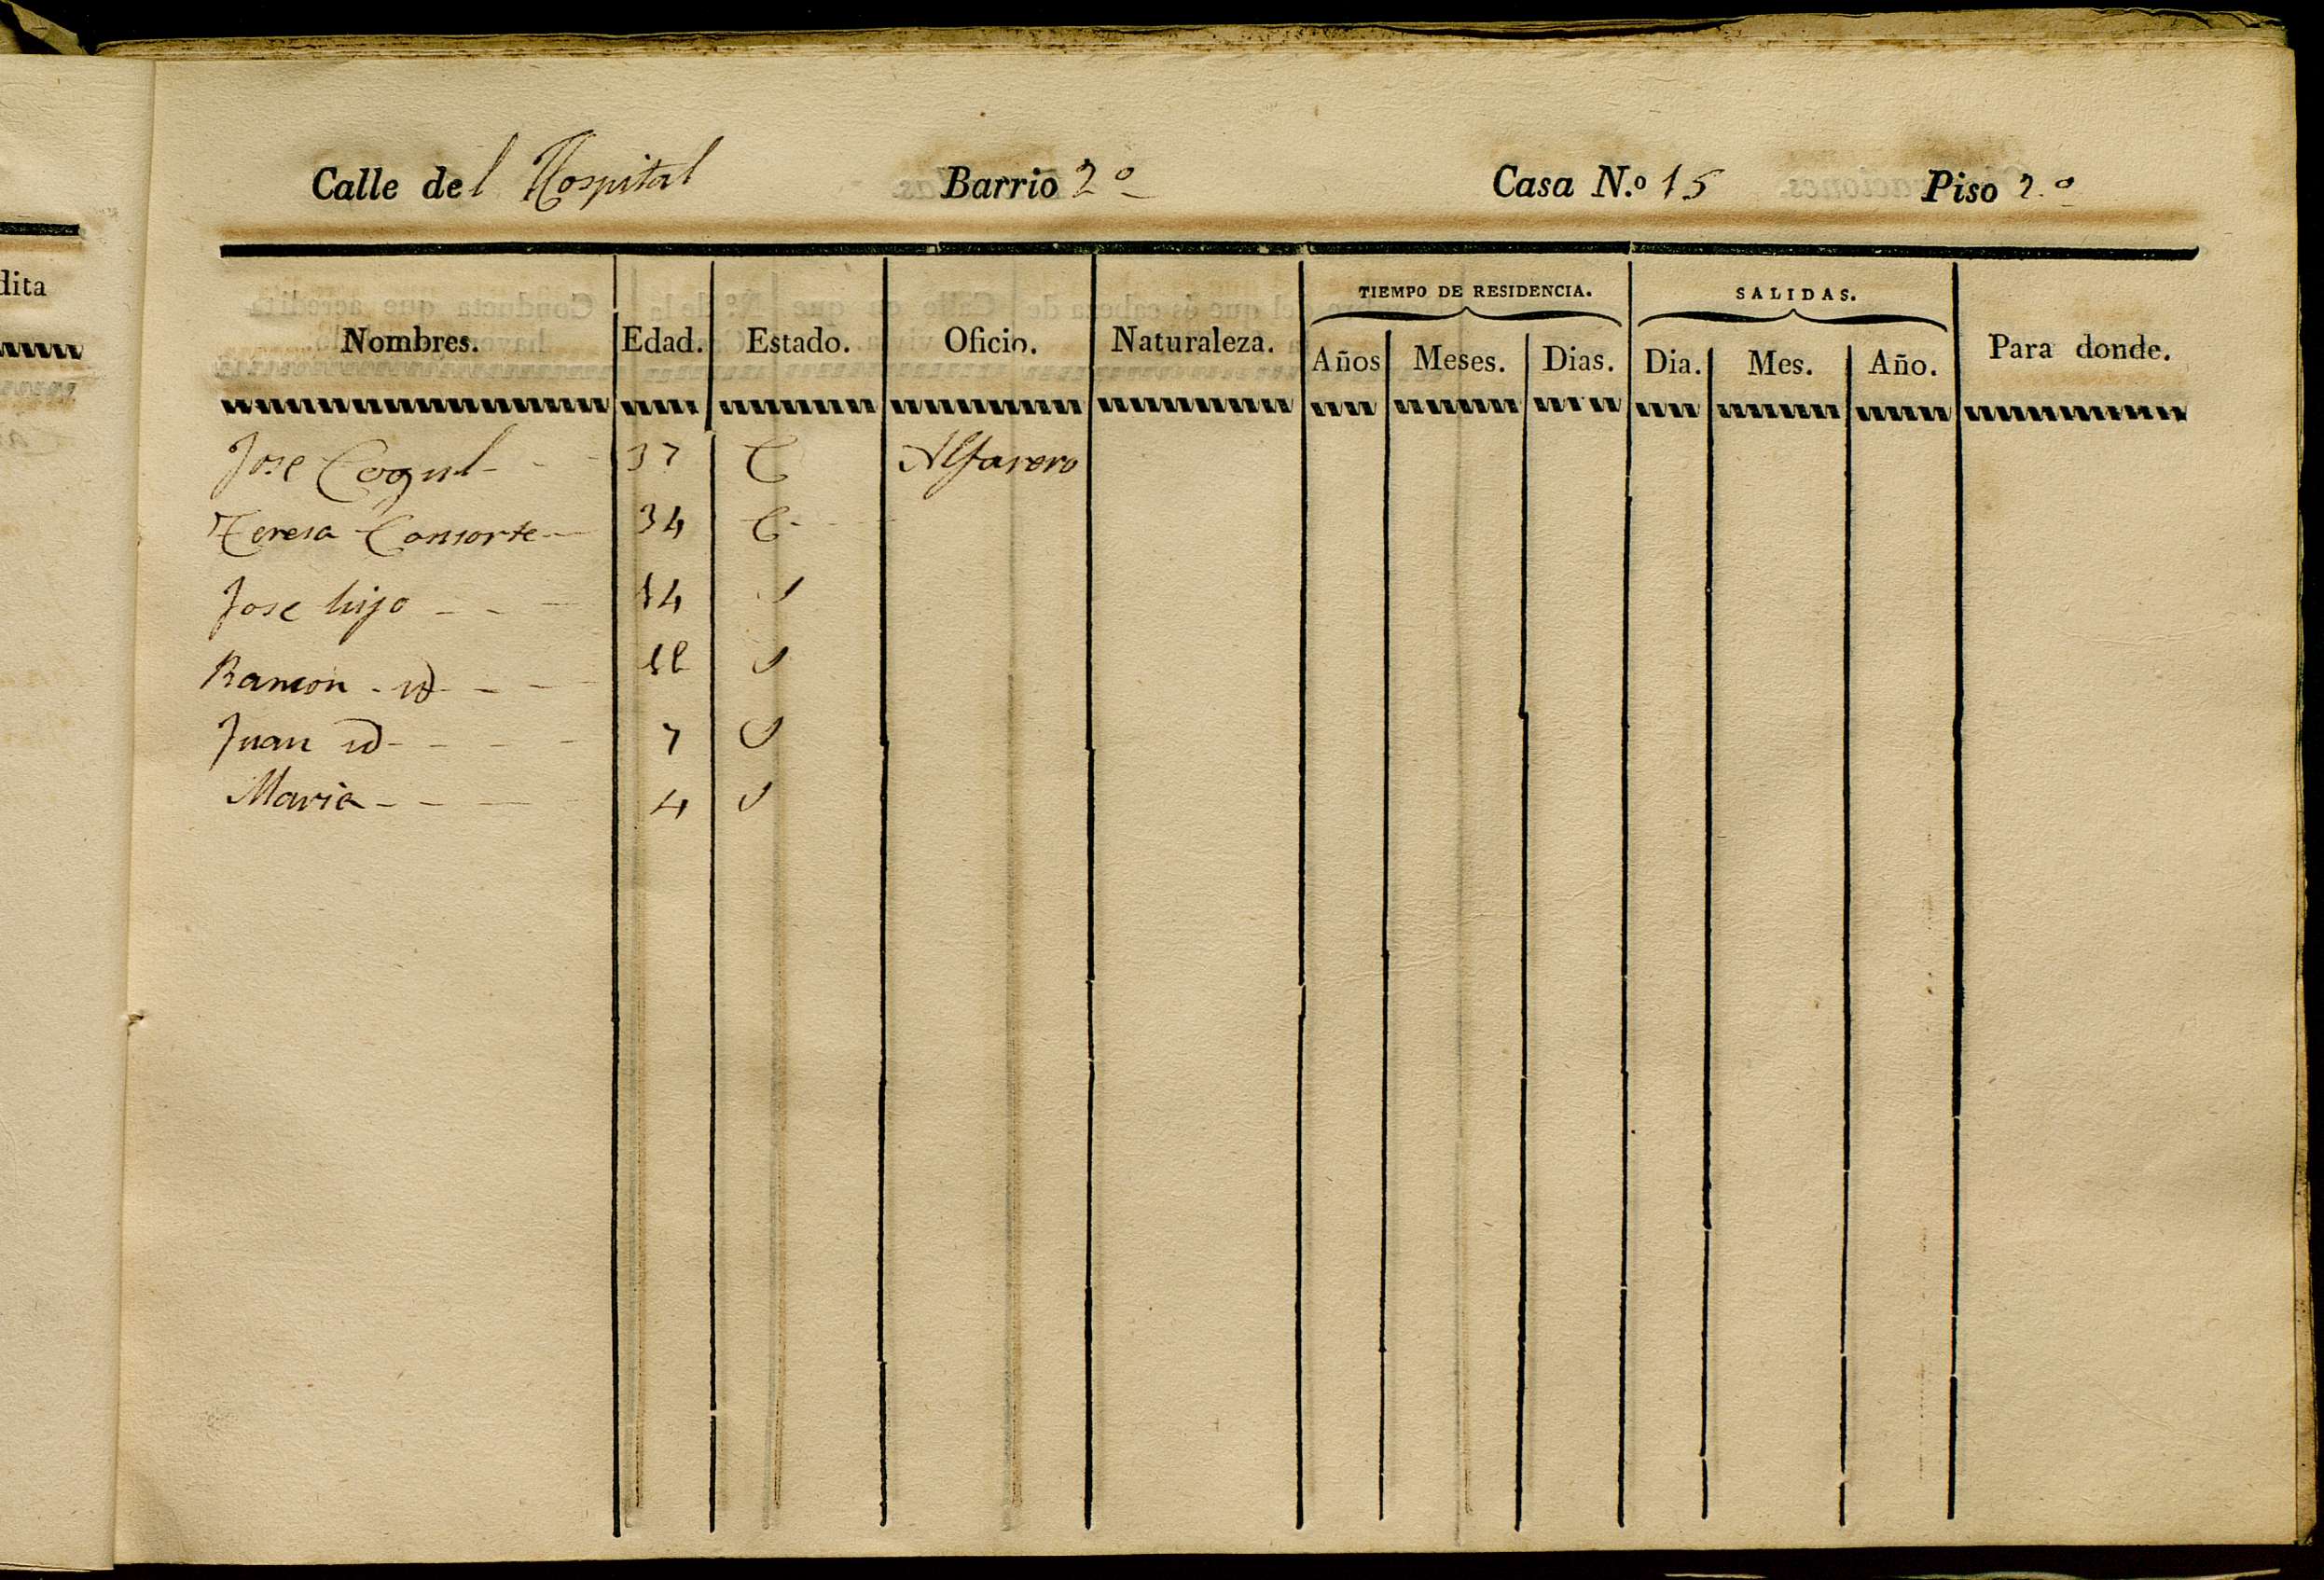 dita
Calle del Hospital Barrio 2º Casa N.º 15 Piso 2.º
TIEMPO DE RESIDENCIA. SALIDAS.
Nombres. Edad. Estado. Oficio. Naturaleza. Años Meses. Dias. Dia. Mes. Año. Para donde.
Jose Cogul 37 C Alfarero
Teresa Consorte 34 C
Jose hijo 14 S
Ramon id S
Juan id 7 S
Maria 4 S